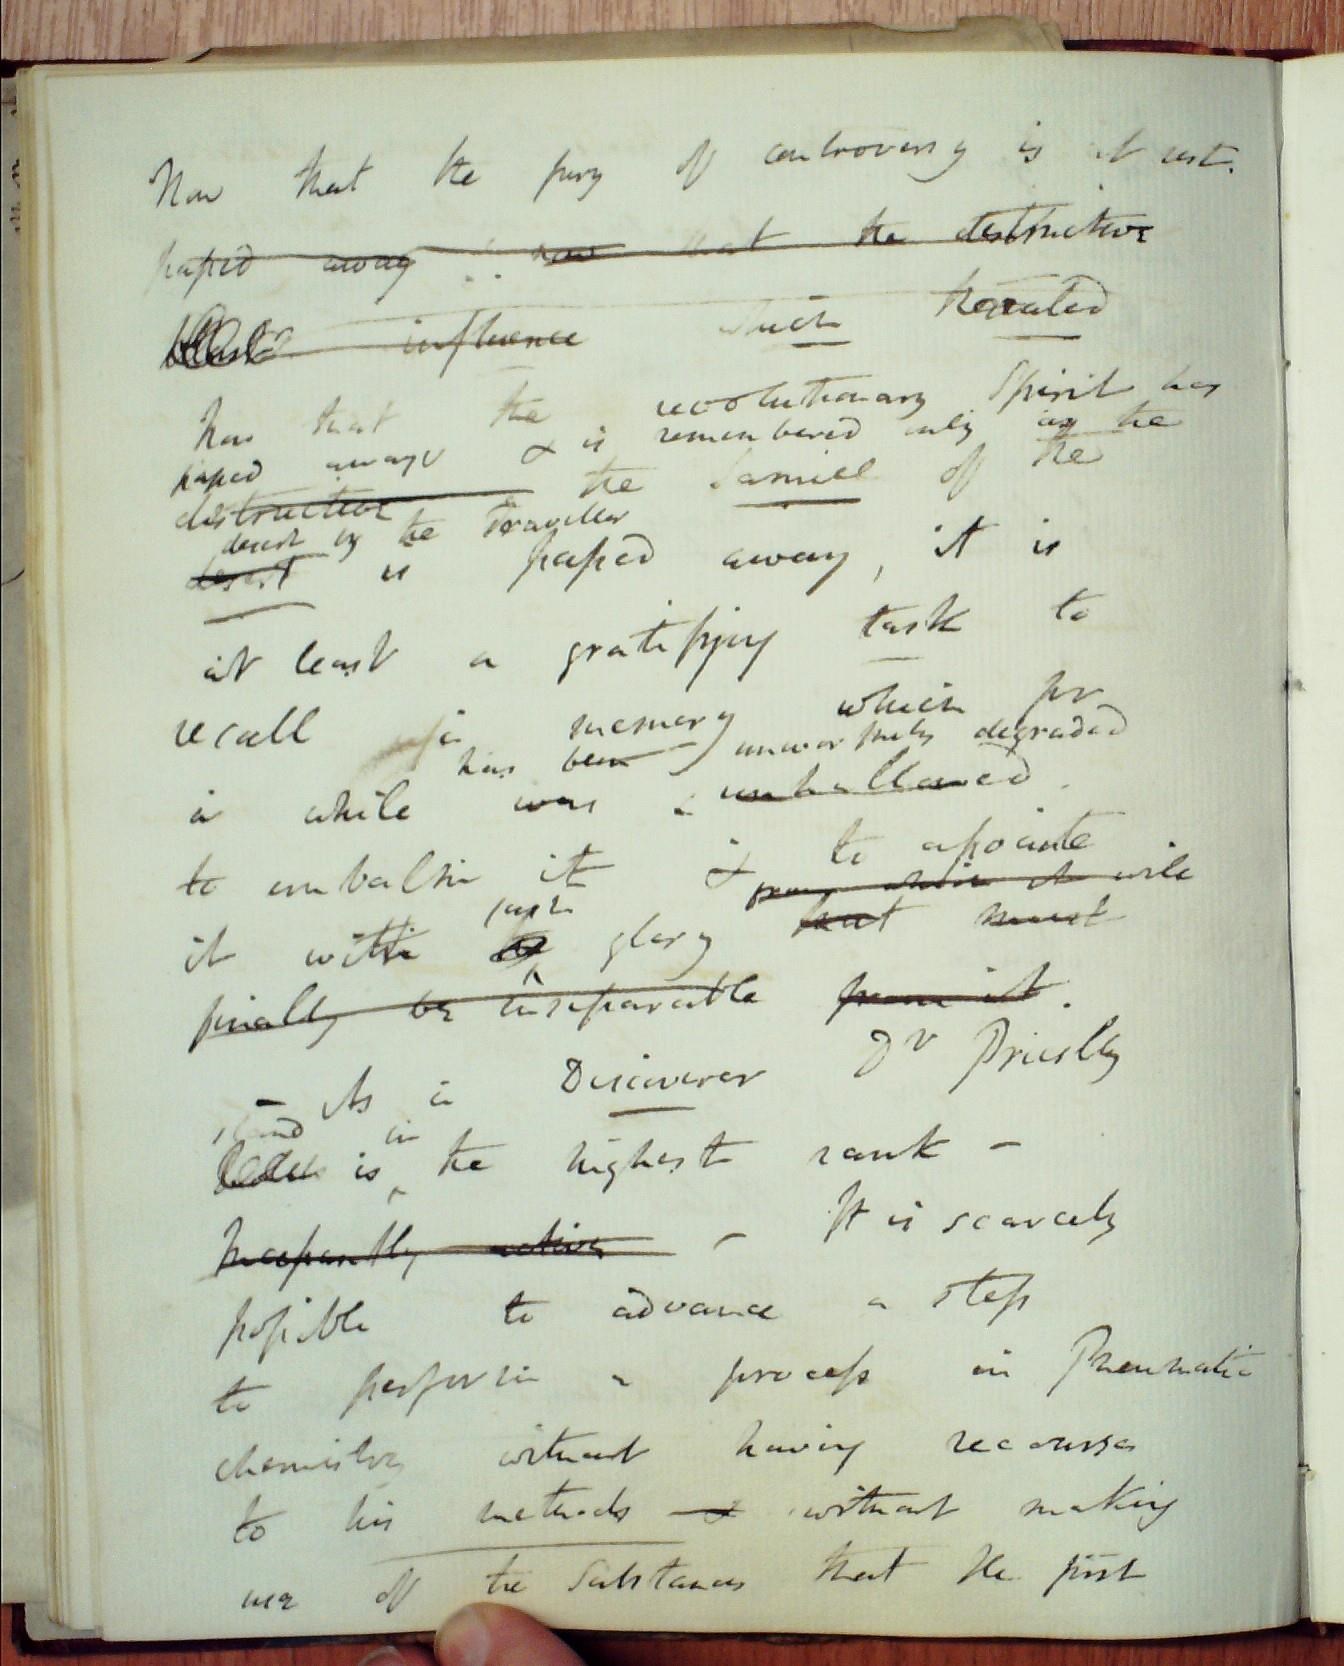 Now that the fury of controversy is at rest.
passed away now that the destructive
Blast influence which
Now that the revolutionary Spirit has
passed away & is remembered only as the
destructive the Samiel of the
desert by the traveller
desert is passed away, it is
at least a gratifying task to
recall a memory which for
has been unworthily degraded
a while was unhallowed.
to embalm it & to associate
it with glory
from which it will
such
but must
finally be inseparable from it.
As a Discoverer Dr Priestly
stand in
is the highest rank -
Incessantly active - It is scarcely
possible to advance a step
to perform a process in Pneumatic
chemistry without having recourse
to his methods & without making
use of the Substances that he first